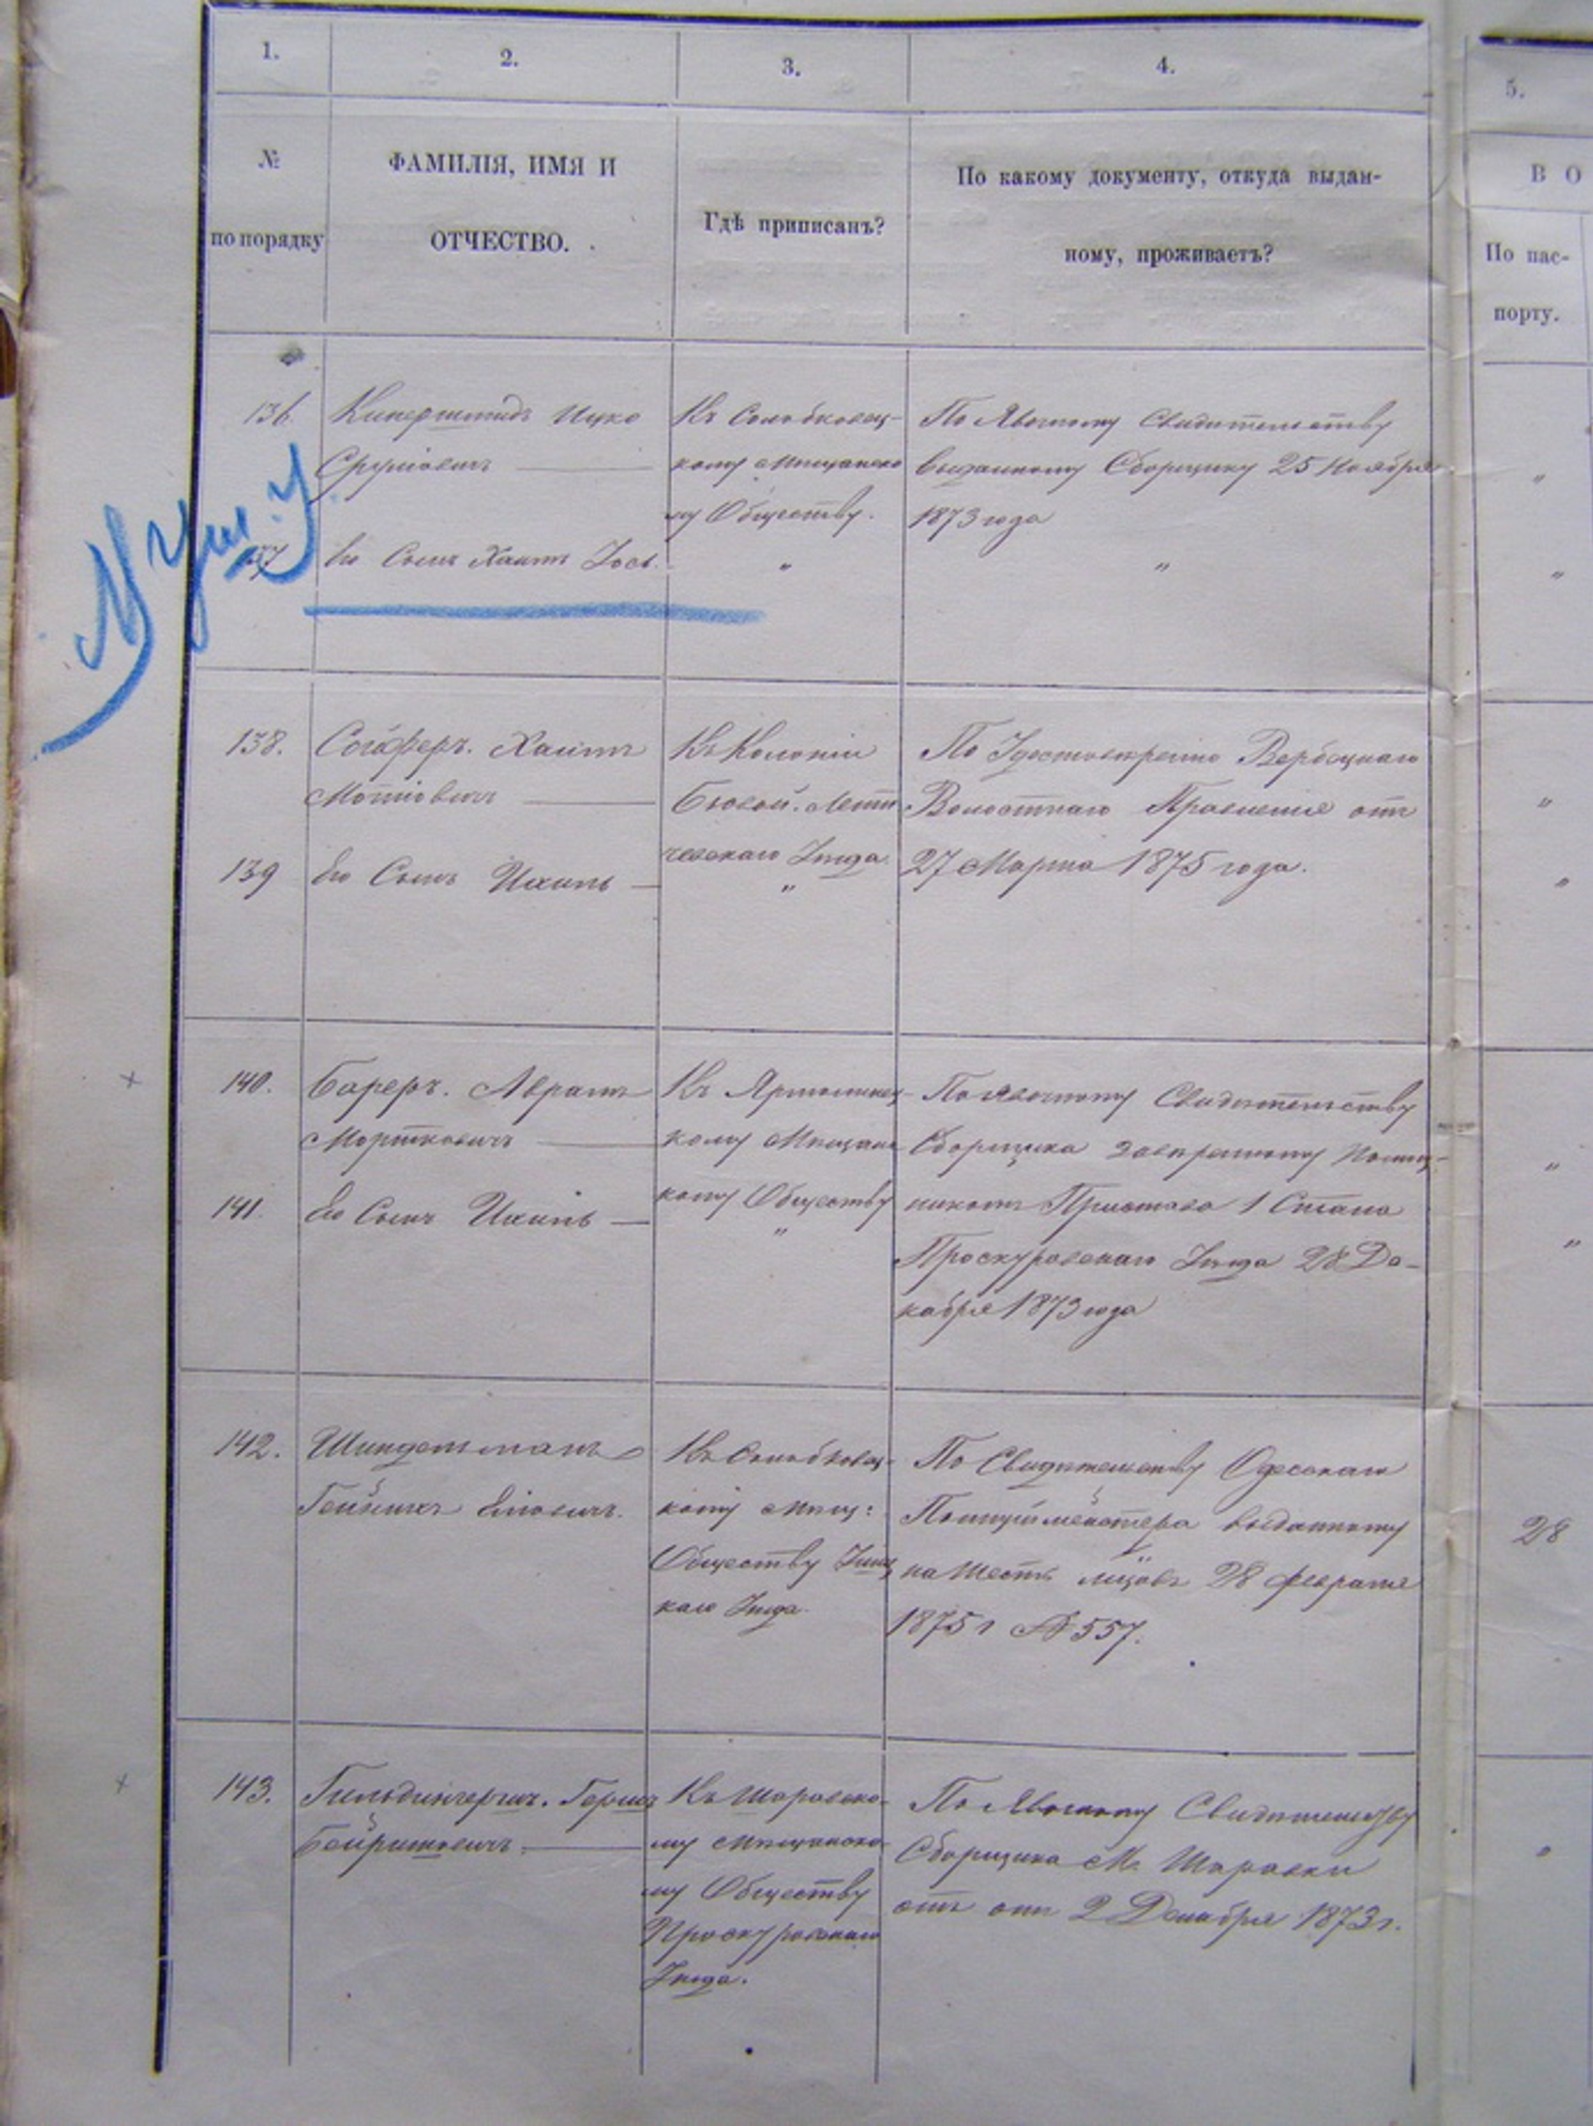 1.
2.
3.
4.
5.
№
по порядку
ФАМИЛІЯ, ИМЯ И
ОТЧЕСТВО.
Гдѣ приписанъ?
По какому документу, откуда выдан-
ному, проживаетъ?
В О
По пас-
порту.
136.
Ицко
Срулiовичъ
Къ Солобковец-
кому Мѣщанско
му Обществу.
По Явочному Свидѣтельству
выданному Сборщику 25 Ноября
1873 года
"
137
Его Сынъ Хаимъ Іось.
"
"
"
138.
Хаимъ
Мотіовичъ
Къ Колоніи
Лети
чевскаго Уѣзда
По Удостовѣренію Вербецкаго
Волостнаго Правленія отъ
27 Марта 1875 года.
"
139
Его Сынъ Ихиль
"
"
140.
Бареръ. Аврамъ
Мортковичъ
Къ Ярмолинец-
кому Мѣщанс
кому Обществу
По явочному Свидѣтельству
Сборщика завѣренному Помощ-
никомъ Пристава 1 Стана
Проскуровскаго Уѣзда 28 Де-
кабря 1873 года
"
141.
Его Сынъ Ихиль
"
"
142.
Шиндельманъ
Гейнихъ Еліовичъ.
Къ Солобковец-
кому Мѣщ:
Обществу Ушиц
каго Уѣзда.
По Свидѣтельству Одесскаго
Полицiймейстера выданному
на шесть мѣсяцовъ 28 февраля
1875 г № 557.
28
143.
Гильдингершъ. Герш
Беришковичъ.
Къ Шаровско-
му Мѣщанско-
му Обществу
Проскуровскаго
Уѣзда.
По Явочному Свидѣтельству
Сборщика М. Шаровки
отъ отъ 2 Декабря 1873 г.
"